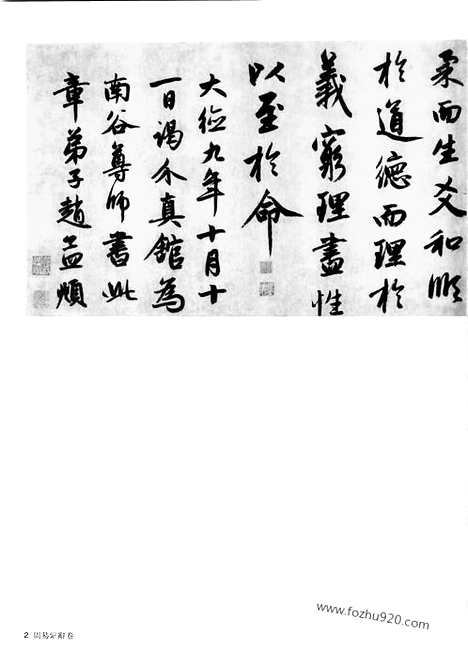 柔而生爻和順
於道德而理於
義窮理盡性
以至於命
大德九年十月十
一日謁介真館為
南谷尊師書此
章弟子趙孟頫
www.fozhu920.com
2 周易系辭卷